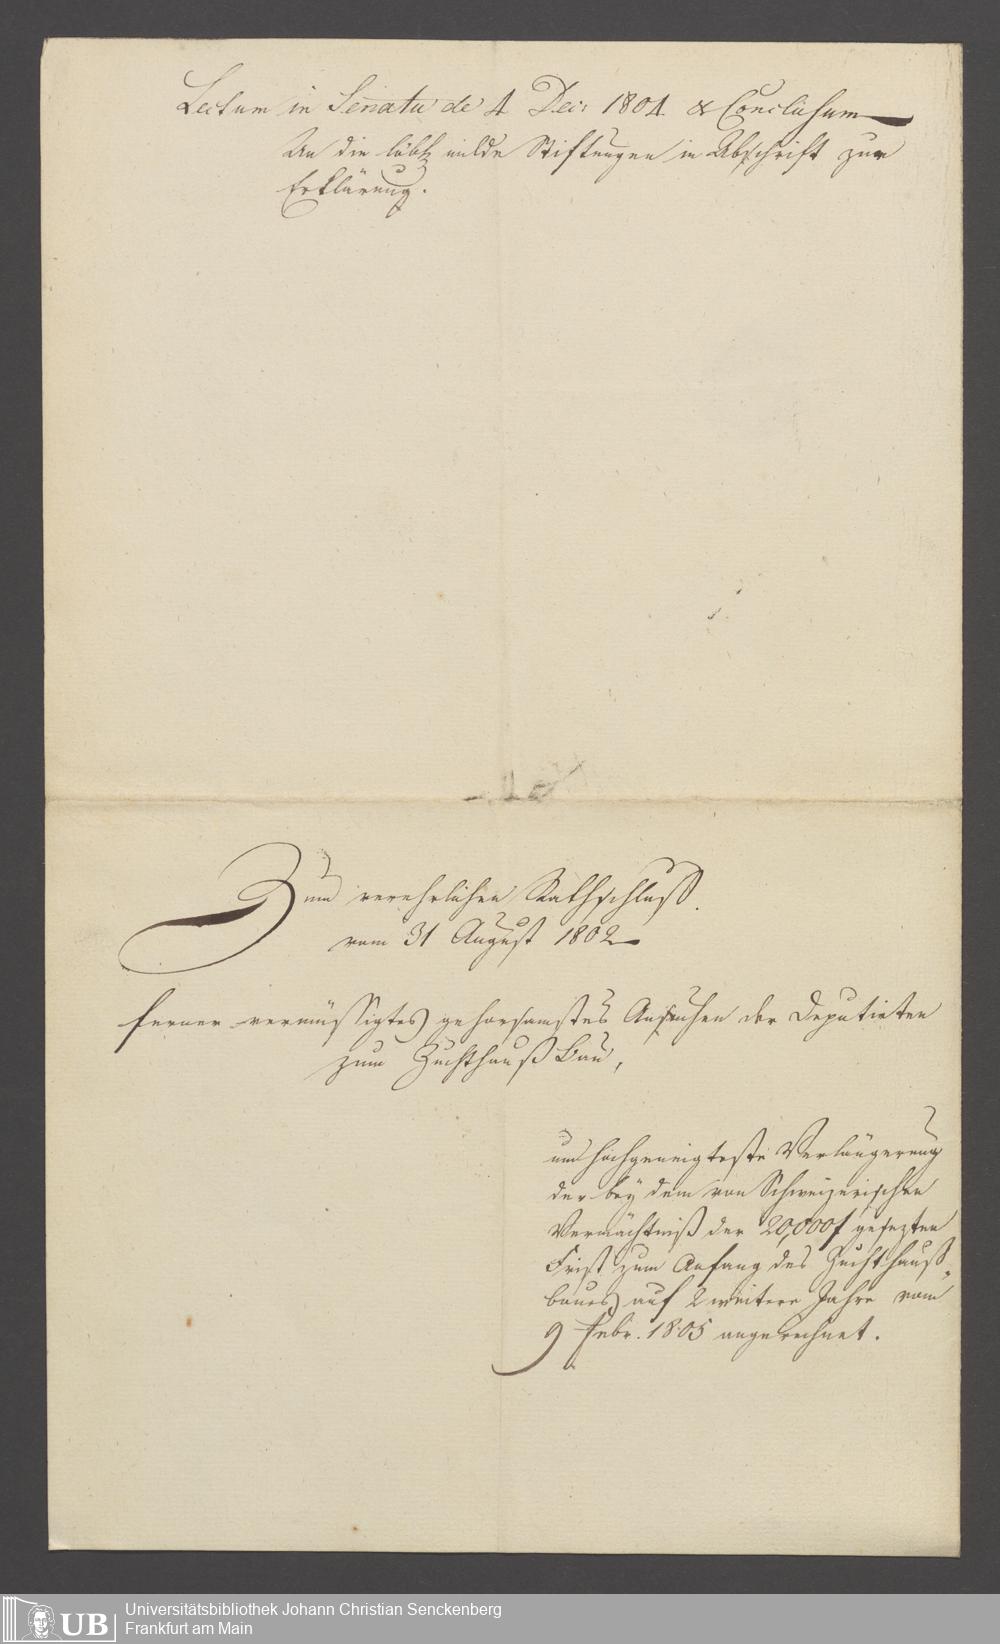 Lectum in Senatu de 4 Dec: 1804. & Conclusum
An die löbl milde Stiftungen in Abschrift zur
Erklärung.
Zum verehrlichen Rathschluß
vom 31 August 1802
ferner vermüssigtes gehorsamstes Ansuchen der Deputirten
zum Zuchthauß Bau,
um hochgeneigteste Verlängerung
der bey dem von Schweizerischen
Vermächtniß der 20,000f gesezten
Frist zum Anfang des Zuchthauß-
baues auf 2 weitere Jahre vom
9 Febr. 1805 angerechnet.
UB
Universitätsbibliothek Johann Christian Senckenberg
Frankfurt am Main